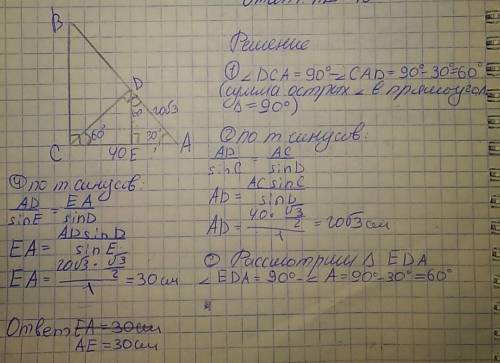 Решение
B
D
60°
20√3
60°
30°
C
40
E
A
① ∠DCA = 90° - ∠CAD = 90° - 30° = 60°
(сумма острых ∠ в прямоугол.
Δ = 90°)
② по т синусов:
AD/sinC = AC/sinD
AD = AC sinC/sinD
AD = (40 · √3/2)/1 = 20√3 см
Рассмотрим Δ EDA
∠EDA = 90° - ∠A = 90° - 30° = 60°
④ по т синусов:
AD/sinE = EA/sinD
EA = AD sinD/sinE
EA = (20√3 · √3/2)/1 = 30 см
Ответ: EA = 30 см
AE = 30 см